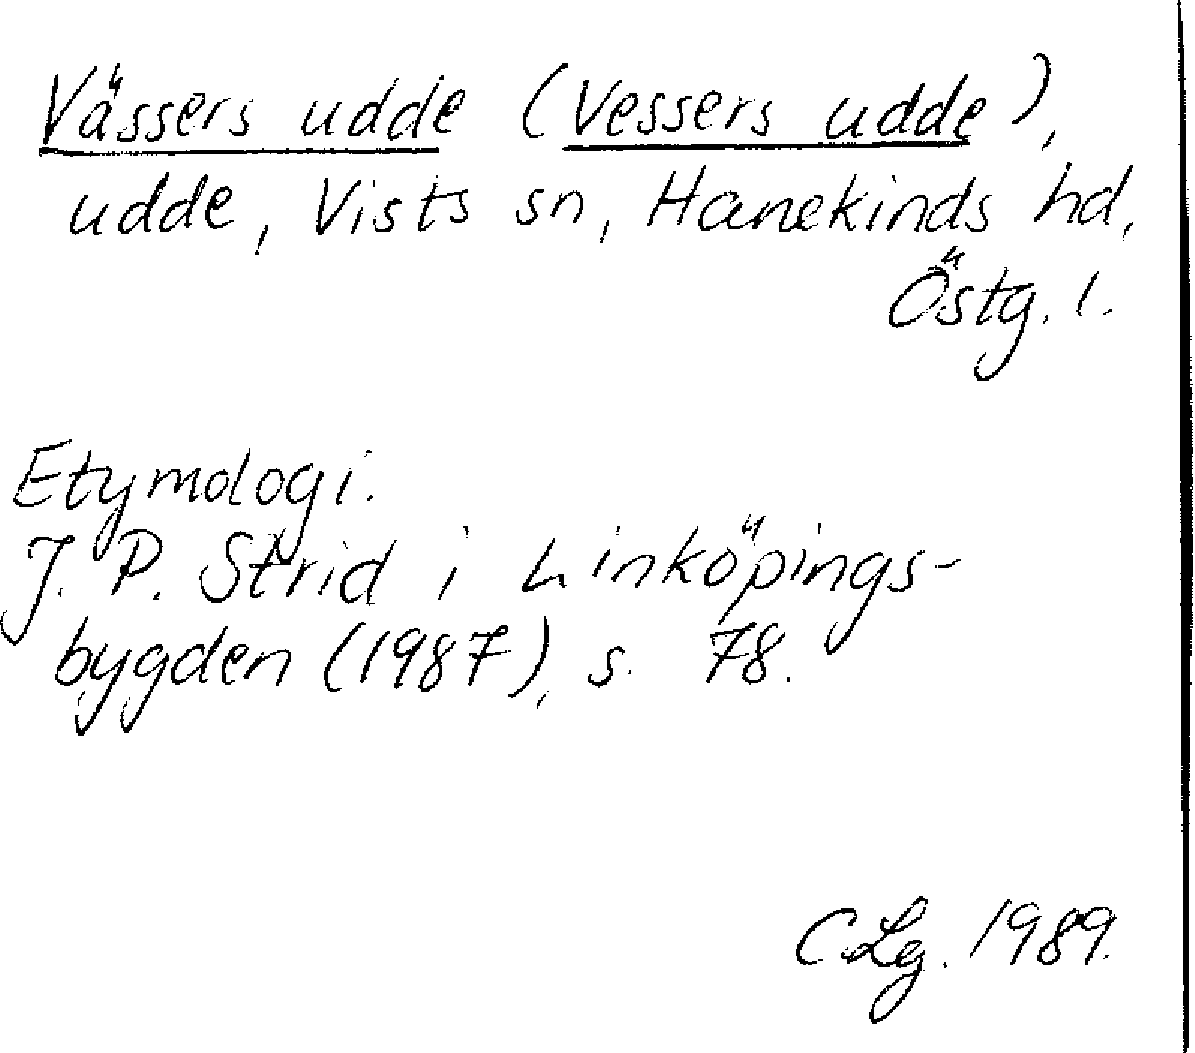 Vässers udde (Vessers udde),
udde, Vists sn, Hanekinds hd,
Östg. l.
Etymologi.
J. P. Strid i Linköpings-
bygden (1987), s. 78.
C.Lg. 1989.